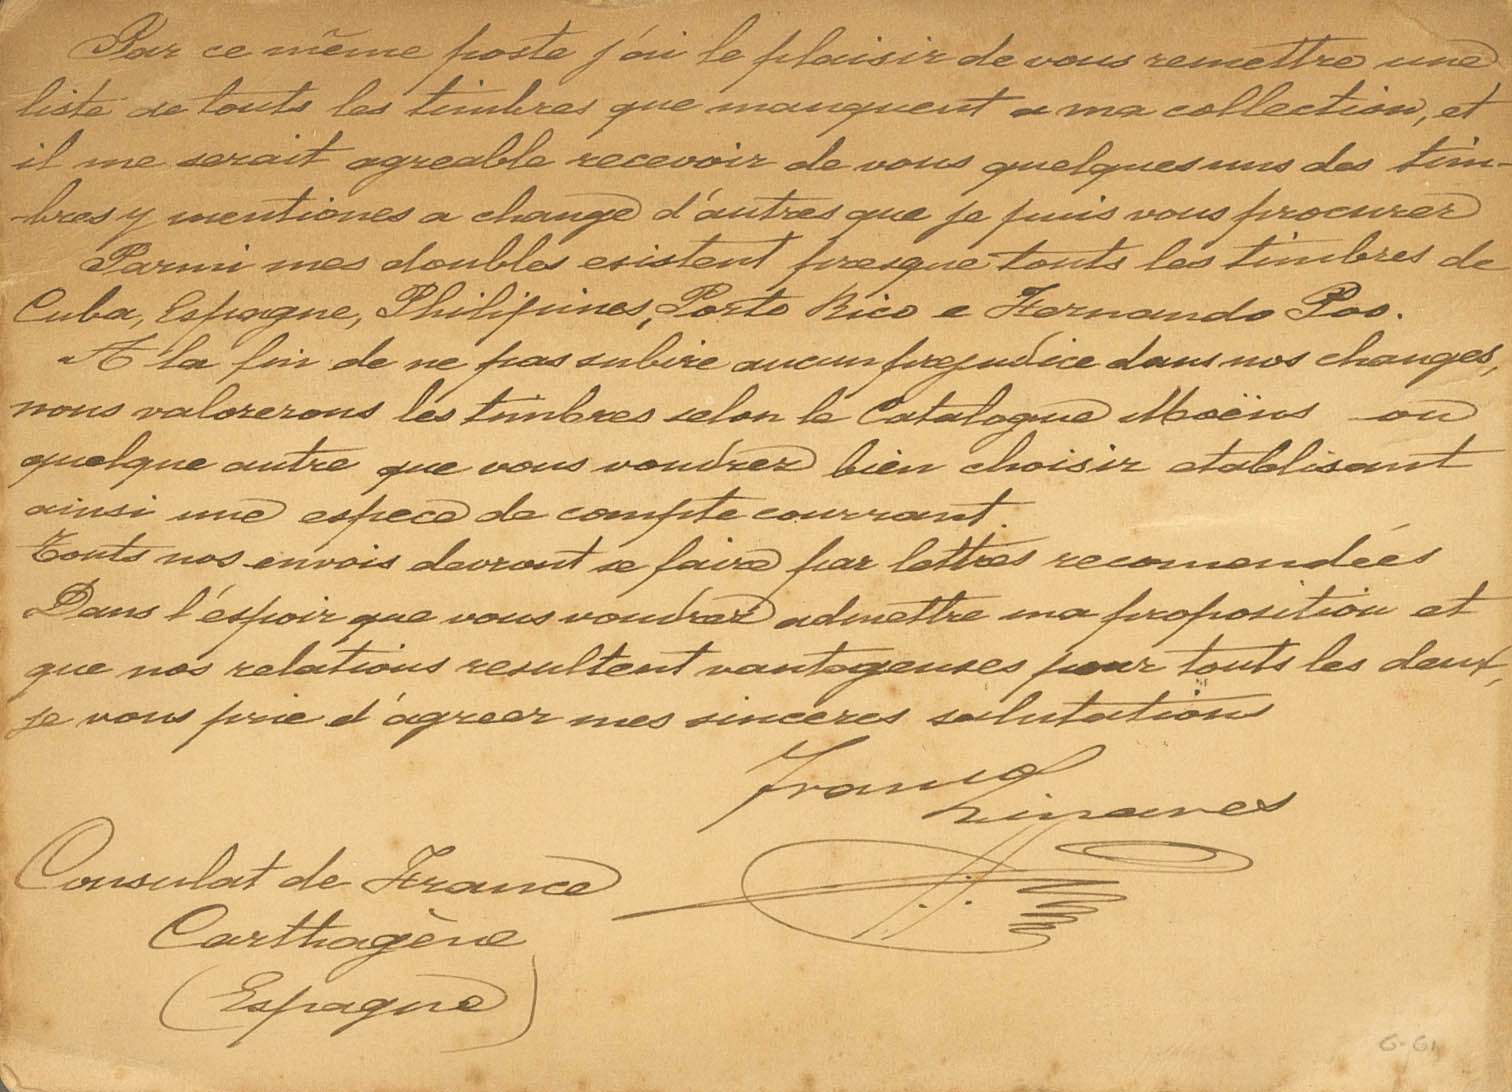 Par ce même poste j'ai le plaisir de vous remettre une
liste de touts les timbres que manquent a ma collection, et
il me serait agreable recevoir de vous quelques uns des tim-
bres y mentiones a change d'autres que je puis vous procurer
Parmi mes doubles existent presque touts les timbres de
Cuba, Espagne, Philipines, Porto Rico e Fernando Poo.
A la fin de ne pas subire aucun prejudice dans nos changes,
nous valorerons les timbres selon le Catalogue Moëns ou
quelque autre que vous voudrez bien choisir etablisant
ainsi une espece de compte courrant.
Touts nos envois devront se faire par lettres recomendées
Dans l'éspoir que vous voudrez admettre ma proposition et
que nos relations resultent vantageuses pour touts les deux,
je vous prie d'agreer mes sinceres salutations
Franco
Linares
Consulat de France
Carthagène
(Espagne)
6-61